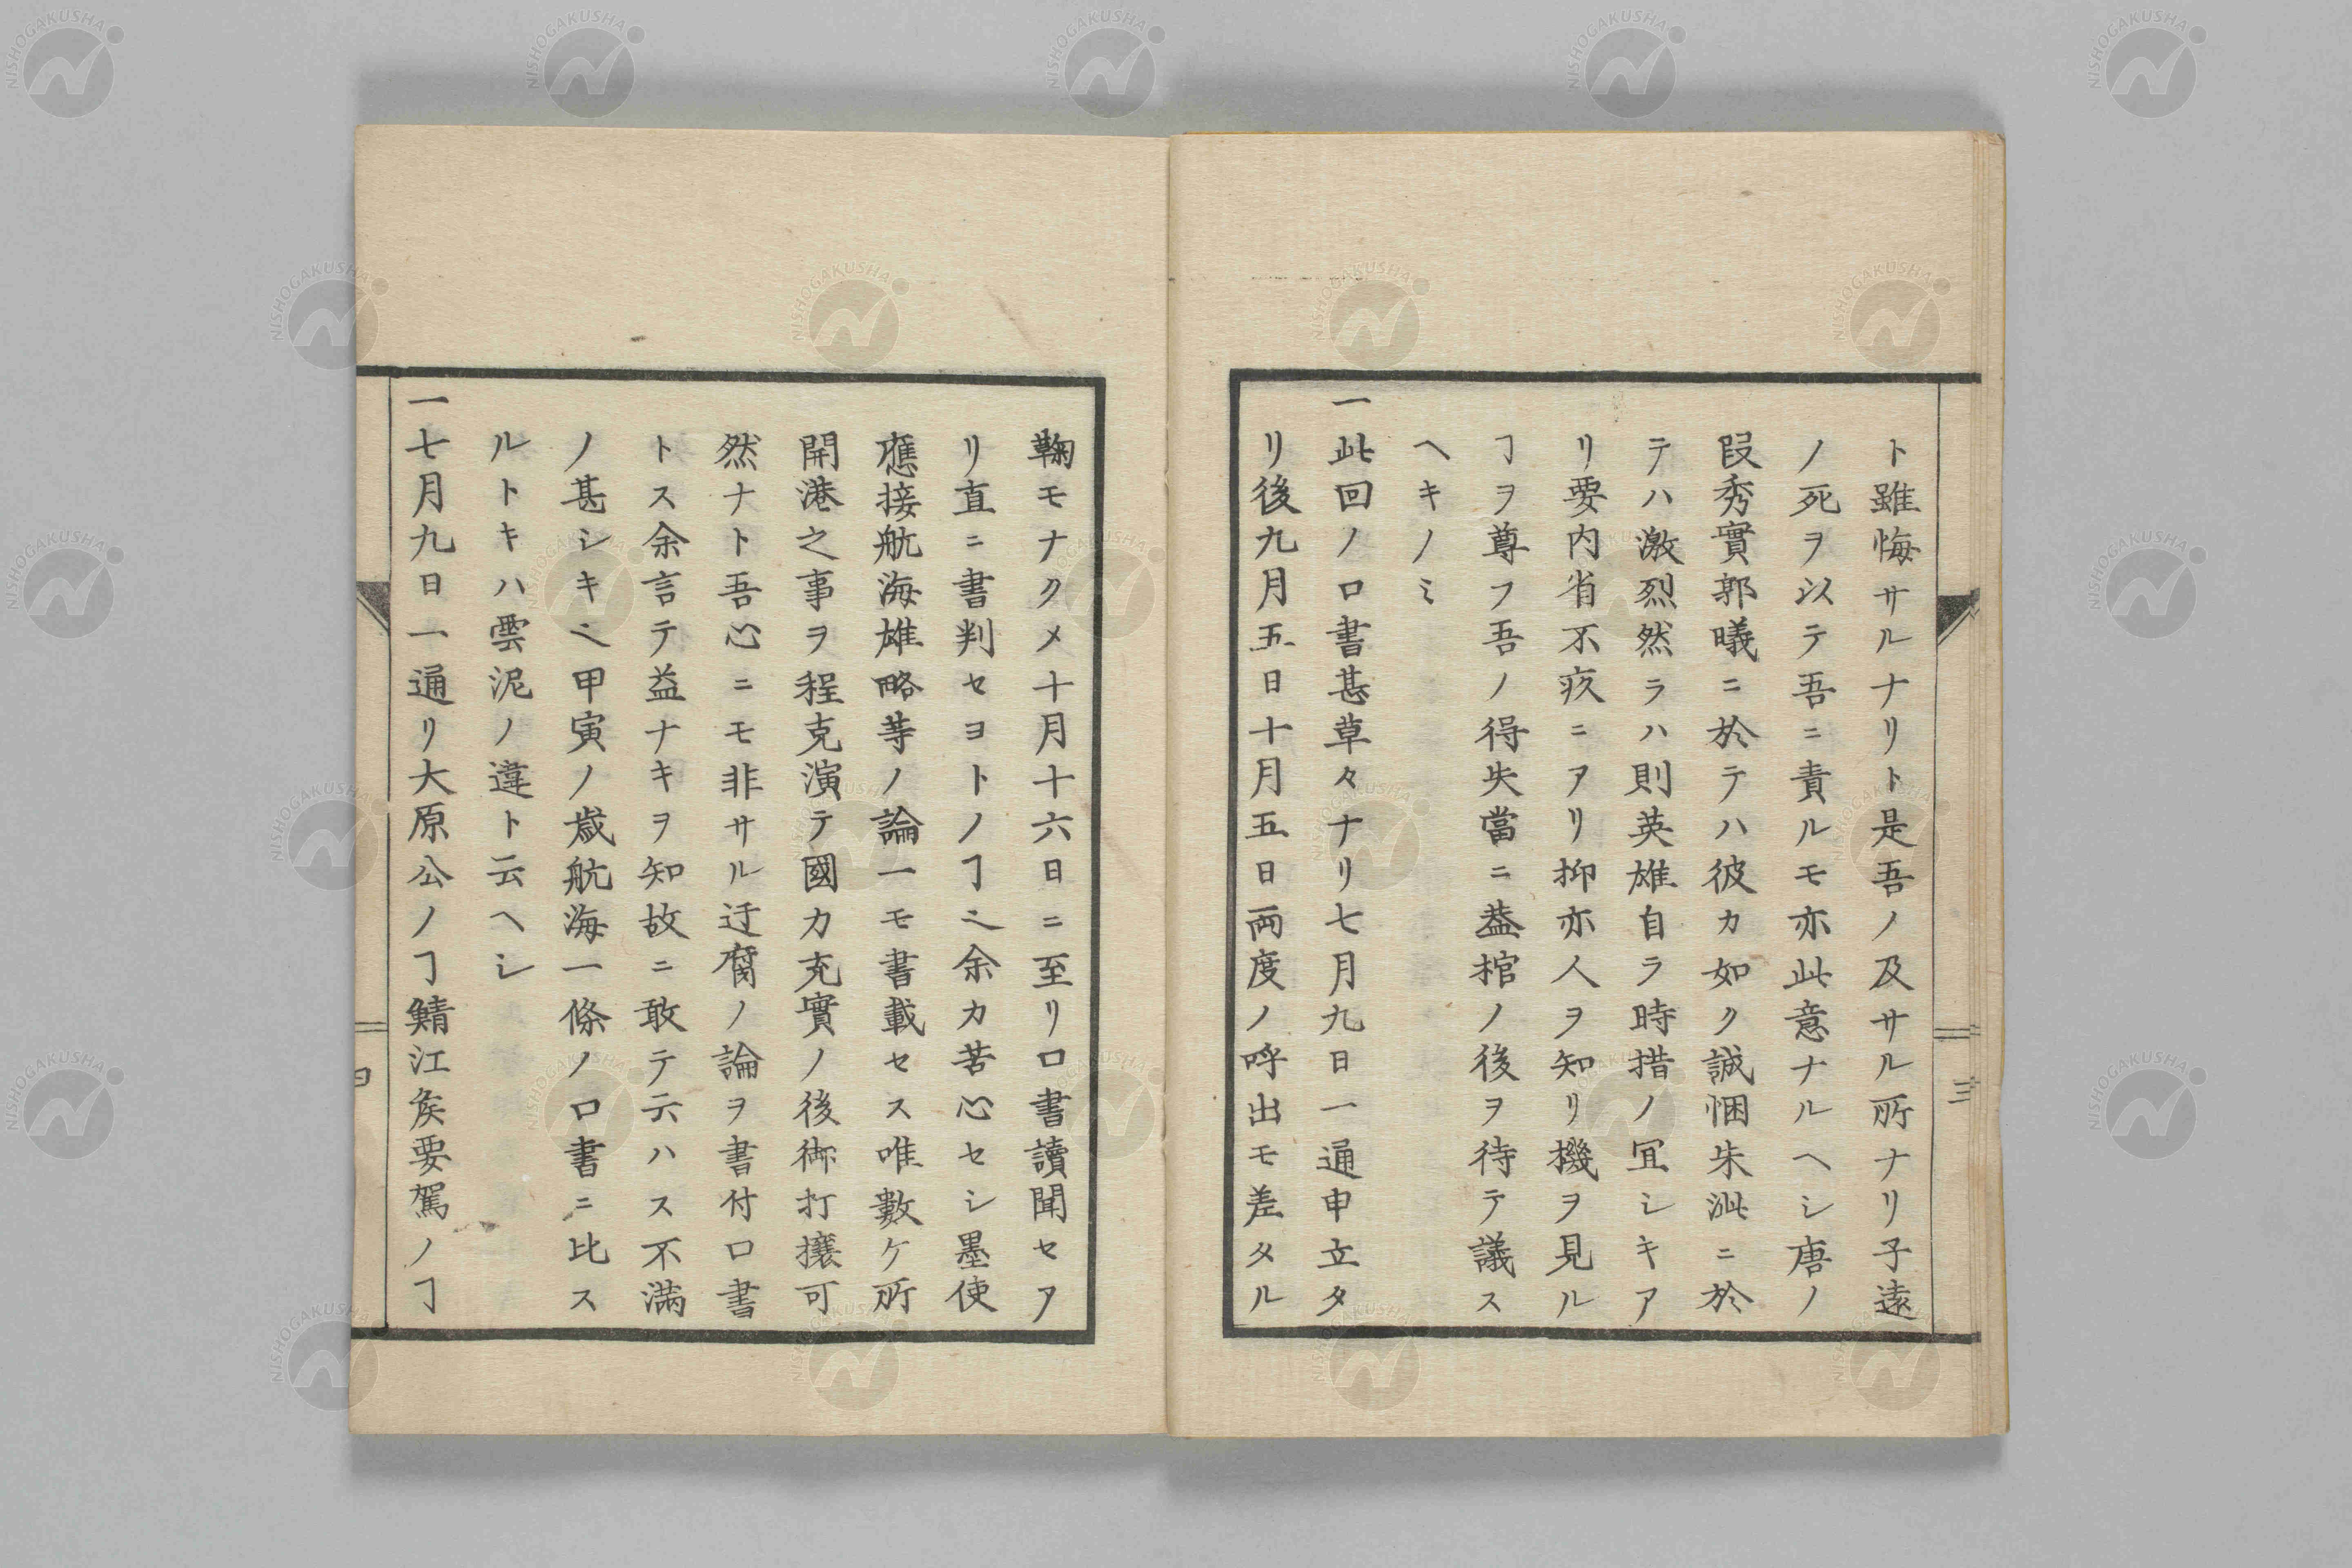 ト雖悔サルナリト是吾ノ及サル所ナリ子遠
ノ死ヲ以テ吾ニ責ルモ亦此意ナルヘシ唐ノ
段秀實郭曦ニ於テハ彼カ如ク誠悃朱泚ニ於
テハ激烈然ラハ則英雄自ラ時措ノ冝シキア
リ要内省不疚ニアリ抑亦人ヲ知リ機ヲ見ル
ヿヲ尊フ吾ノ得失當ニ葢棺ノ後ヲ待テ議ス
ヘキノミ
一此回ノ口書甚草々ナリ七月九日一通申立タ
リ後九月五日十月五日両度ノ呼出モ差タル
三
鞠モナクメ十月十六日ニ至リ口書讀聞セア
リ直ニ書判セヨトノヿ𪜈余カ苦心セシ墨使
應接航海雄略䓁ノ論一モ書載セス唯數ケ所
開港之事ヲ程克演テ國力充實ノ後御打攘可
然ナト吾心ニモ非サル迂腐ノ論ヲ書付口書
トス余言テ益ナキヲ知故ニ敢テ云ハス不満
ノ甚シキ也甲寅ノ歳航海一條ノ口書ニ比ス
ルトキハ雲泥ノ違ト云ヘシ
一七月九日一通リ大原公ノヿ鯖江矦要駕ノヿ
NISHOGAKUSHA